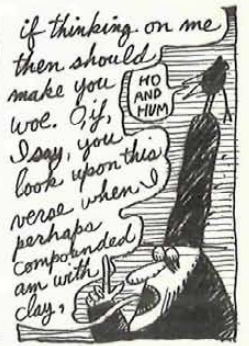 if thinking on me
then should
make you
woe. O, if,
I say, you
look upon this
verse when I
perhaps
compounded
am with
clay,
HO
AND
HUM